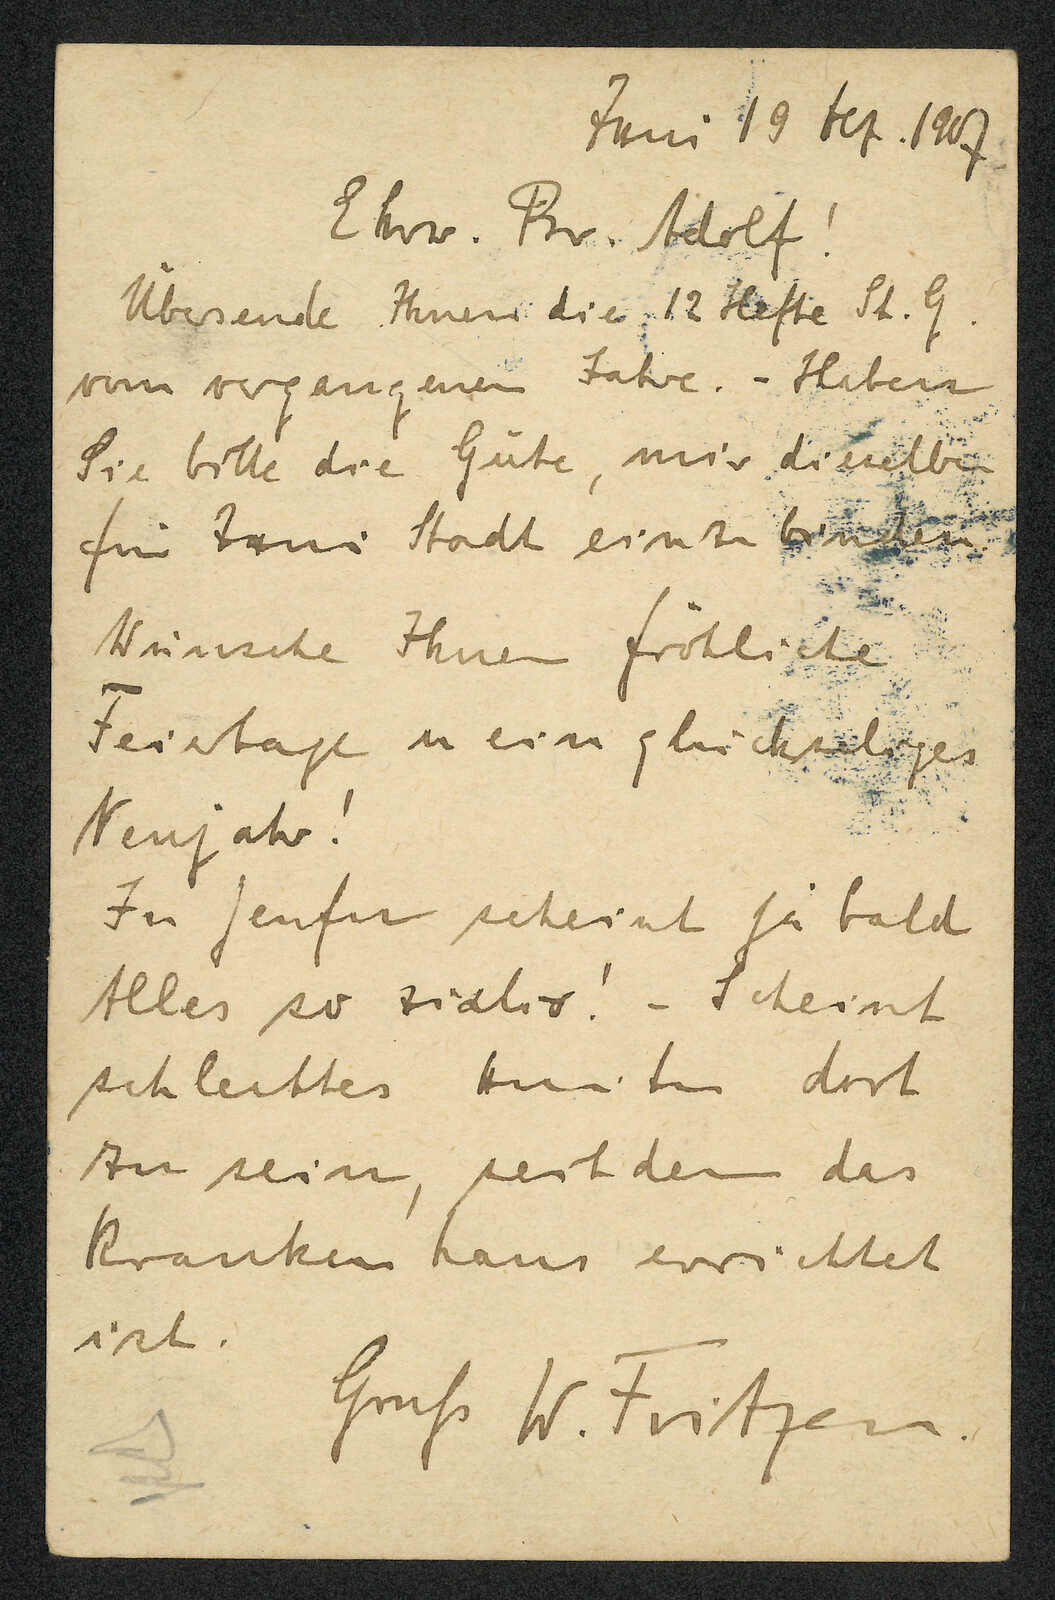 Züni 19 Dez. 1907
Ehrw. Br. Adolf!
Übersende Ihnen die 12 Hefte St. G.
vom vergangenen Jahre. - Haben
Sie bitte die Güte, mir dieselben
für Stadt einzubinden.
Wünsche Ihnen fröhliche
Feiertage u ein glückseliges
Neujahr!
In scheint ja bald
Alles so ! - Scheint
schlechtes dort
zu sein, seitdem das
Krankenhaus errichtet
ist.
Gruß W. Fritzen.